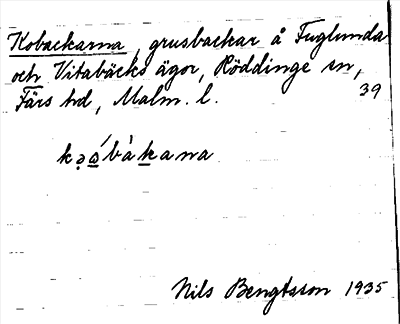 Kobackarna, grusbackar å Fuglunda
och Vitabäcks ägor, Röddinge sn,
Färs hd, Malm. l. 39
kǝábàkana
Nils Bengtsson 1935